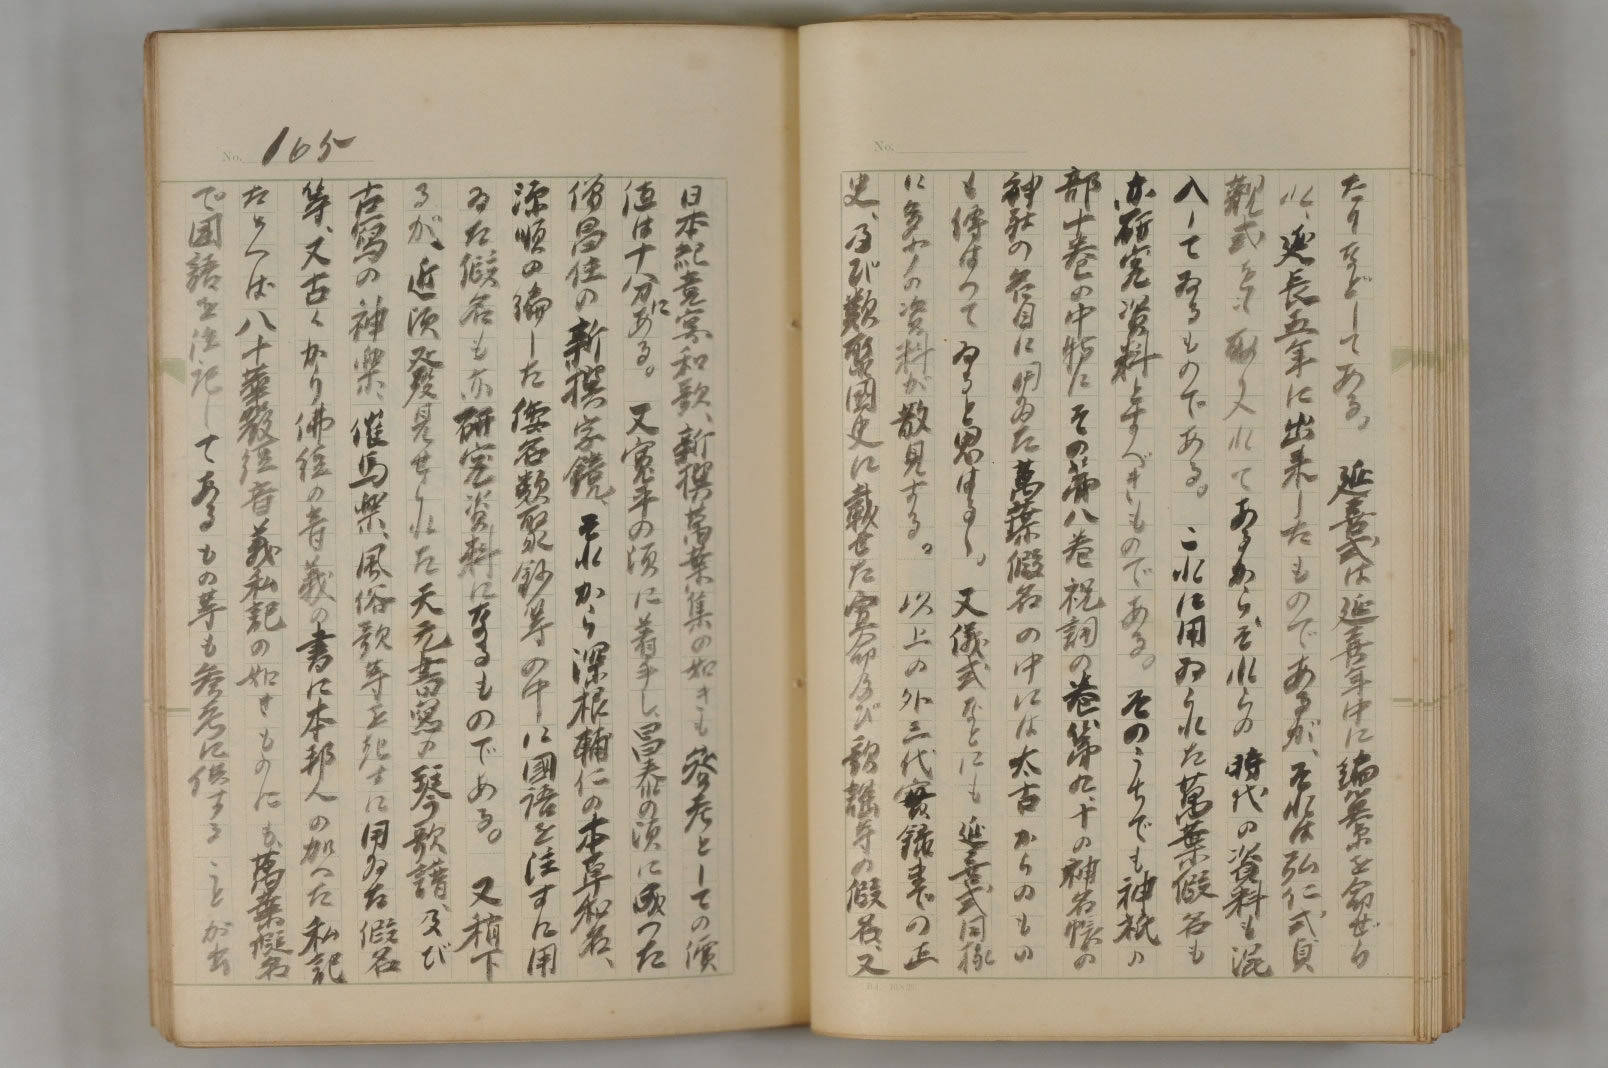 たりなどしてある。延喜式は延喜年中に編纂を命ぜら
れ、延長五年に出来したものであるが、それは弘仁式貞
觀式をも取入れてあるからそれらの時代の資料も混
入してゐるものである。これに用ゐられた萬葉假名も
亦研究資料とすべきものである。そのうちでも神祇の
部十巻の中特にその第八巻祝詞の巻第九、十の神名帳の
神社の名目に用ゐた萬葉假名の中には太古からのもの
も傳はつてゐると思はるゝ。又儀式などにも延喜式同様
に多少の資料が散見する。以上の外三代實録までの正
史、及び類聚國史に載せた宣命及び歌謡等の假名、又
No. 165
日本紀竟宴和歌、新撰萬葉集の如きも參考としての價
値は十分にある。又寛平の頃に着手し、昌泰の頃に成つた
僧昌住の新撰字鏡、それから深根輔仁の本草和名、
源順の編した倭名類聚鈔等の中に國語を注すに用
ゐた假名も亦研究資料になるものである。又稍下
るが、近頃發見せられた天元書寫の琴歌譜、及び
古寫の神樂、催馬樂、風俗歌等を記すに用ゐた假名
等、又古くから佛經の音義の書に本邦人の加へた私記
たとへば八十華嚴經音義私記の如きものにも、萬葉假名
で國語を注記してあるもの等も參考に供することが出
No.
B4. 10×25